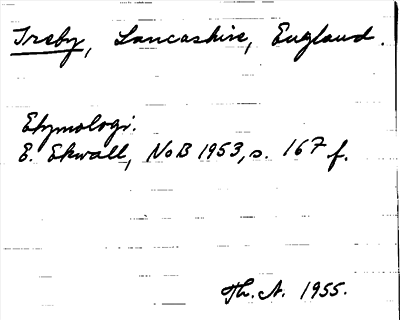 Ireby, Lancashire, England.
Etymologi.
E. Ekwall, NoB 1953, s. 167 f.
Th. A. 1955.